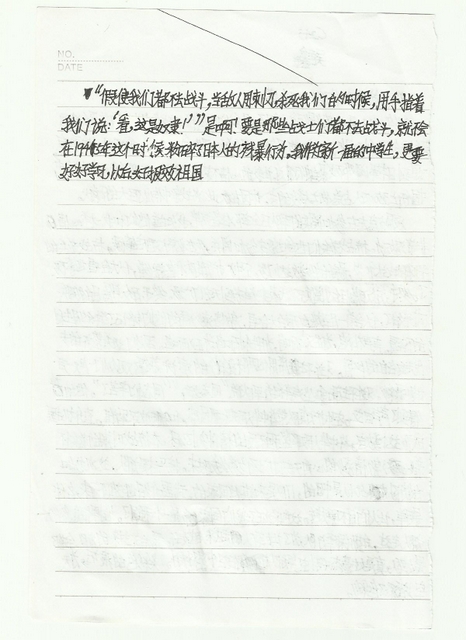 NO.
DATE
"假使我们都不去战斗,当敌人用刺刀杀死我们的时候,用手指着
我们说:'看,这是奴隶!'"是啊!要是那些战士们都不去战斗,就不会
在1945年这个时候粉碎了日本人的残暴行动。我们作新一届的中学生,更要
好好学习,以后好报效祖国